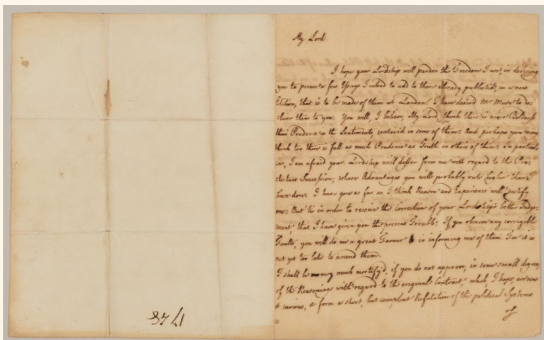 My Lord
I hope your Lordship will pardon the Freedom I use, in desiring
you to peruse a few Essays I intend to add to those already publish'd, in a new
Edition, that is to be made of them at London. I have desird Mr Muir to de
liver them to you. You will, I believe, My Lord, think there is more Boldness
than Prudence in the Sentiments contained in some of them: And perhaps you may
think too there is full as much Prudence as Truth in others of them. In particul
ar, I am afraid your Lordship will differ from me with regard to the Pro
testant Succession; whose Advantages you will probably rate higher than I
have done. I have gone as far as I think Reason and Experience will justify
me: But tis in order to receive the Correction of your Lordship's better Judge
ment, that I have given you the present Trouble. If you observe any corrigible
Faults, you will do me a great Favour in informing me of them. For it is
not yet too late to amend them.
I shall be very much mortify'd, if you do not approve, in some small degree,
of the Reasonings with regard to the original Contract, which, I hope, are new
& curious, & form a short, but compleat Refutation of the political Systems
of
1748